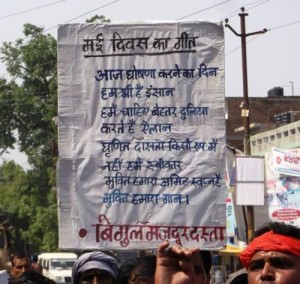 मई दिवस का गीत
आज घोषणा करने का दिन
हम भी हैं इंसान
हमें चाहिए बेहतर दुनिया
करते हैं ऐलान
घृणित दासता किसी रूप में
नहीं हमें स्वीकार
मुक्ति हमारा अमिट स्वप्न है
मुक्ति हमारा गान।
• बिगुल मजदूर दस्ता